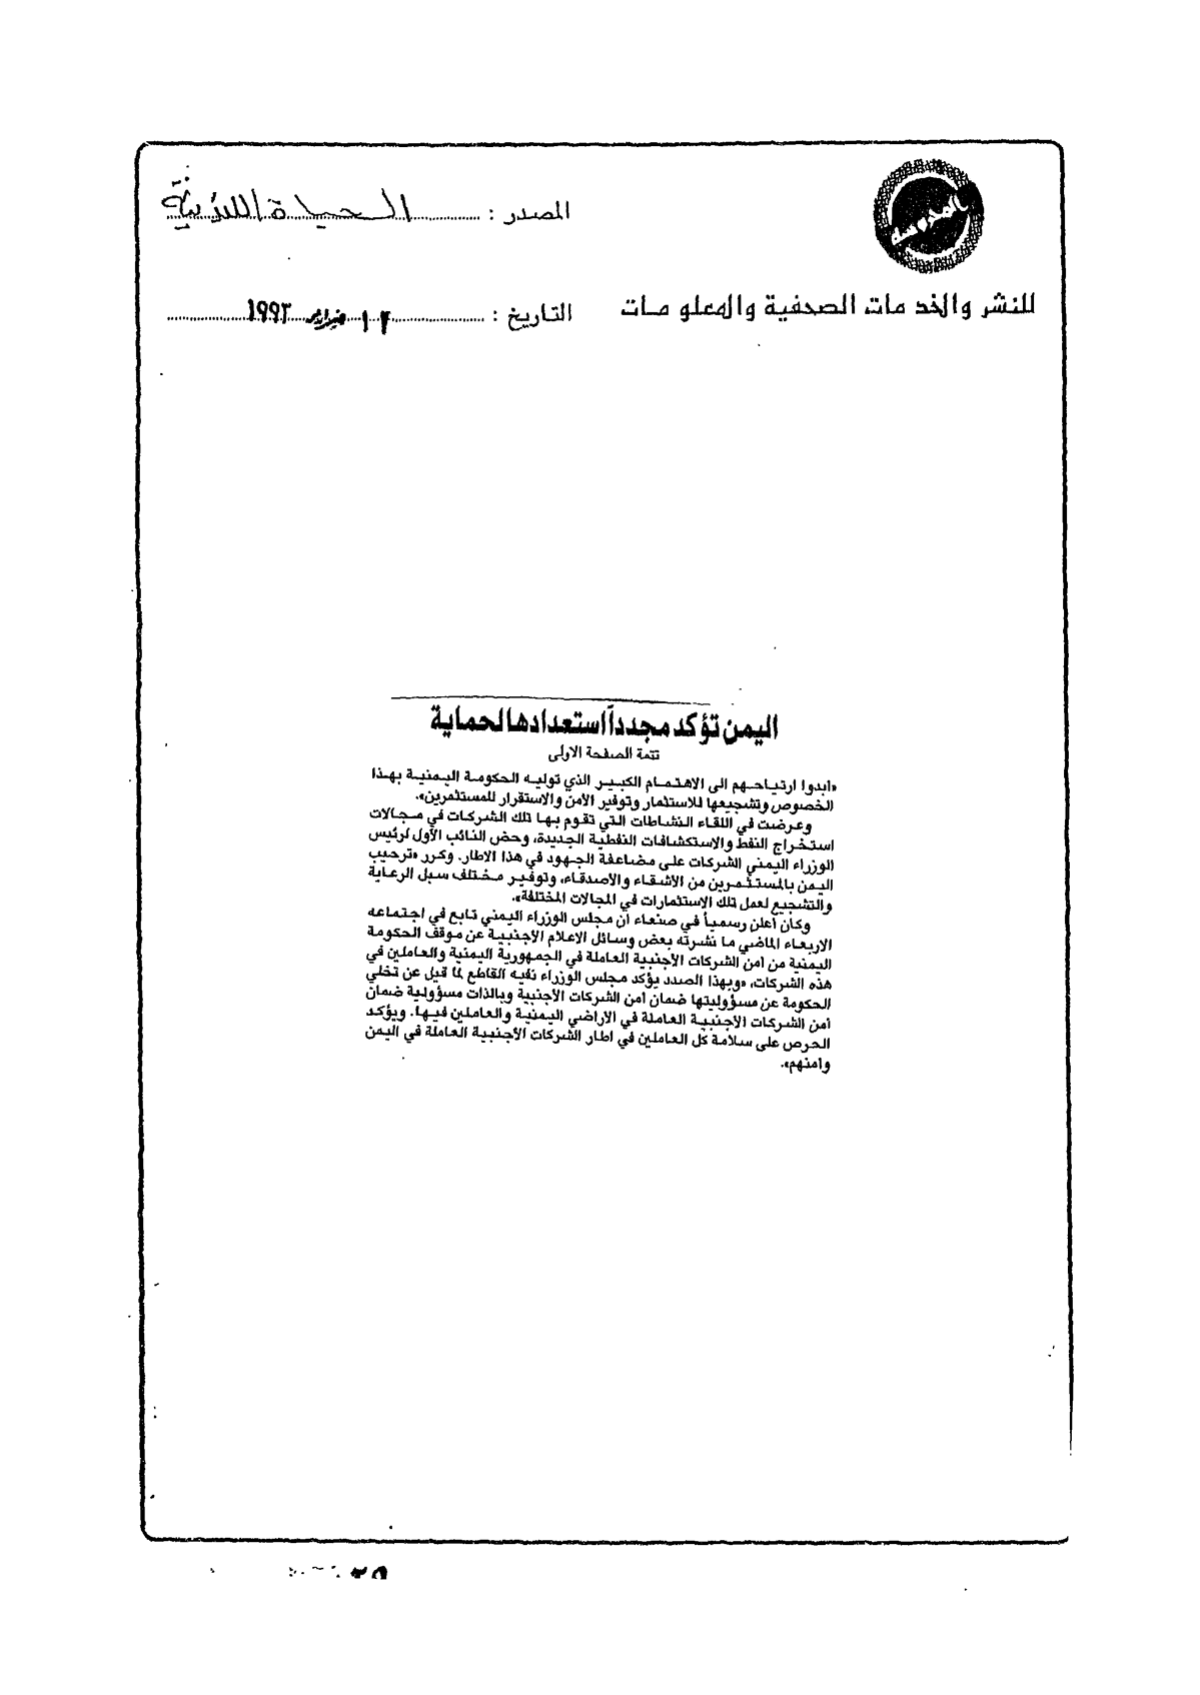 المصدر : الحياة اللندنية
للنشر والخدمات الصحفية والمعلومات
التاريخ : ١٢ فبراير ١٩٩٣
اليمن تؤكد مجدداً استعدادها لحماية
تتمة الصفحة الاولى
«أبدوا ارتياحهم الى الاهتمام الكبير الذي توليه الحكومة اليمنية بهذا
الخصوص وتشجيعها للاستثمار وتوفير الأمن والاستقرار للمستثمرين».
وعرضت في اللقاء النشاطات التي تقوم بها تلك الشركات في مجالات
استخراج النفط والاستكشافات النفطية الجديدة، وحض النائب الأول لرئيس
الوزراء اليمني الشركات على مضاعفة الجهود في هذا الاطار. وكرر «ترحيب
اليمن بالمستثمرين من الأشقاء والأصدقاء، وتوفير مختلف سبل الرعاية
والتشجيع لعمل تلك الاستثمارات في المجالات المختلفة».
وكان أعلن رسمياً في صنعاء أن مجلس الوزراء اليمني تابع في اجتماعه
الاربعاء الماضي ما نشرته بعض وسائل الاعلام الأجنبية عن موقف الحكومة
اليمنية من أمن الشركات الأجنبية العاملة في الجمهورية اليمنية والعاملين في
هذه الشركات، «وبهذا الصدد يؤكد مجلس الوزراء نفيه القاطع لما قيل عن تخلي
الحكومة عن مسؤوليتها ضمان أمن الشركات الأجنبية وبالذات مسؤولية ضمان
أمن الشركات الأجنبية العاملة في الأراضي اليمنية والعاملين فيها. ويؤكد
الحرص على سلامة كل العاملين في اطار الشركات الأجنبية العاملة في اليمن
وأمنهم».